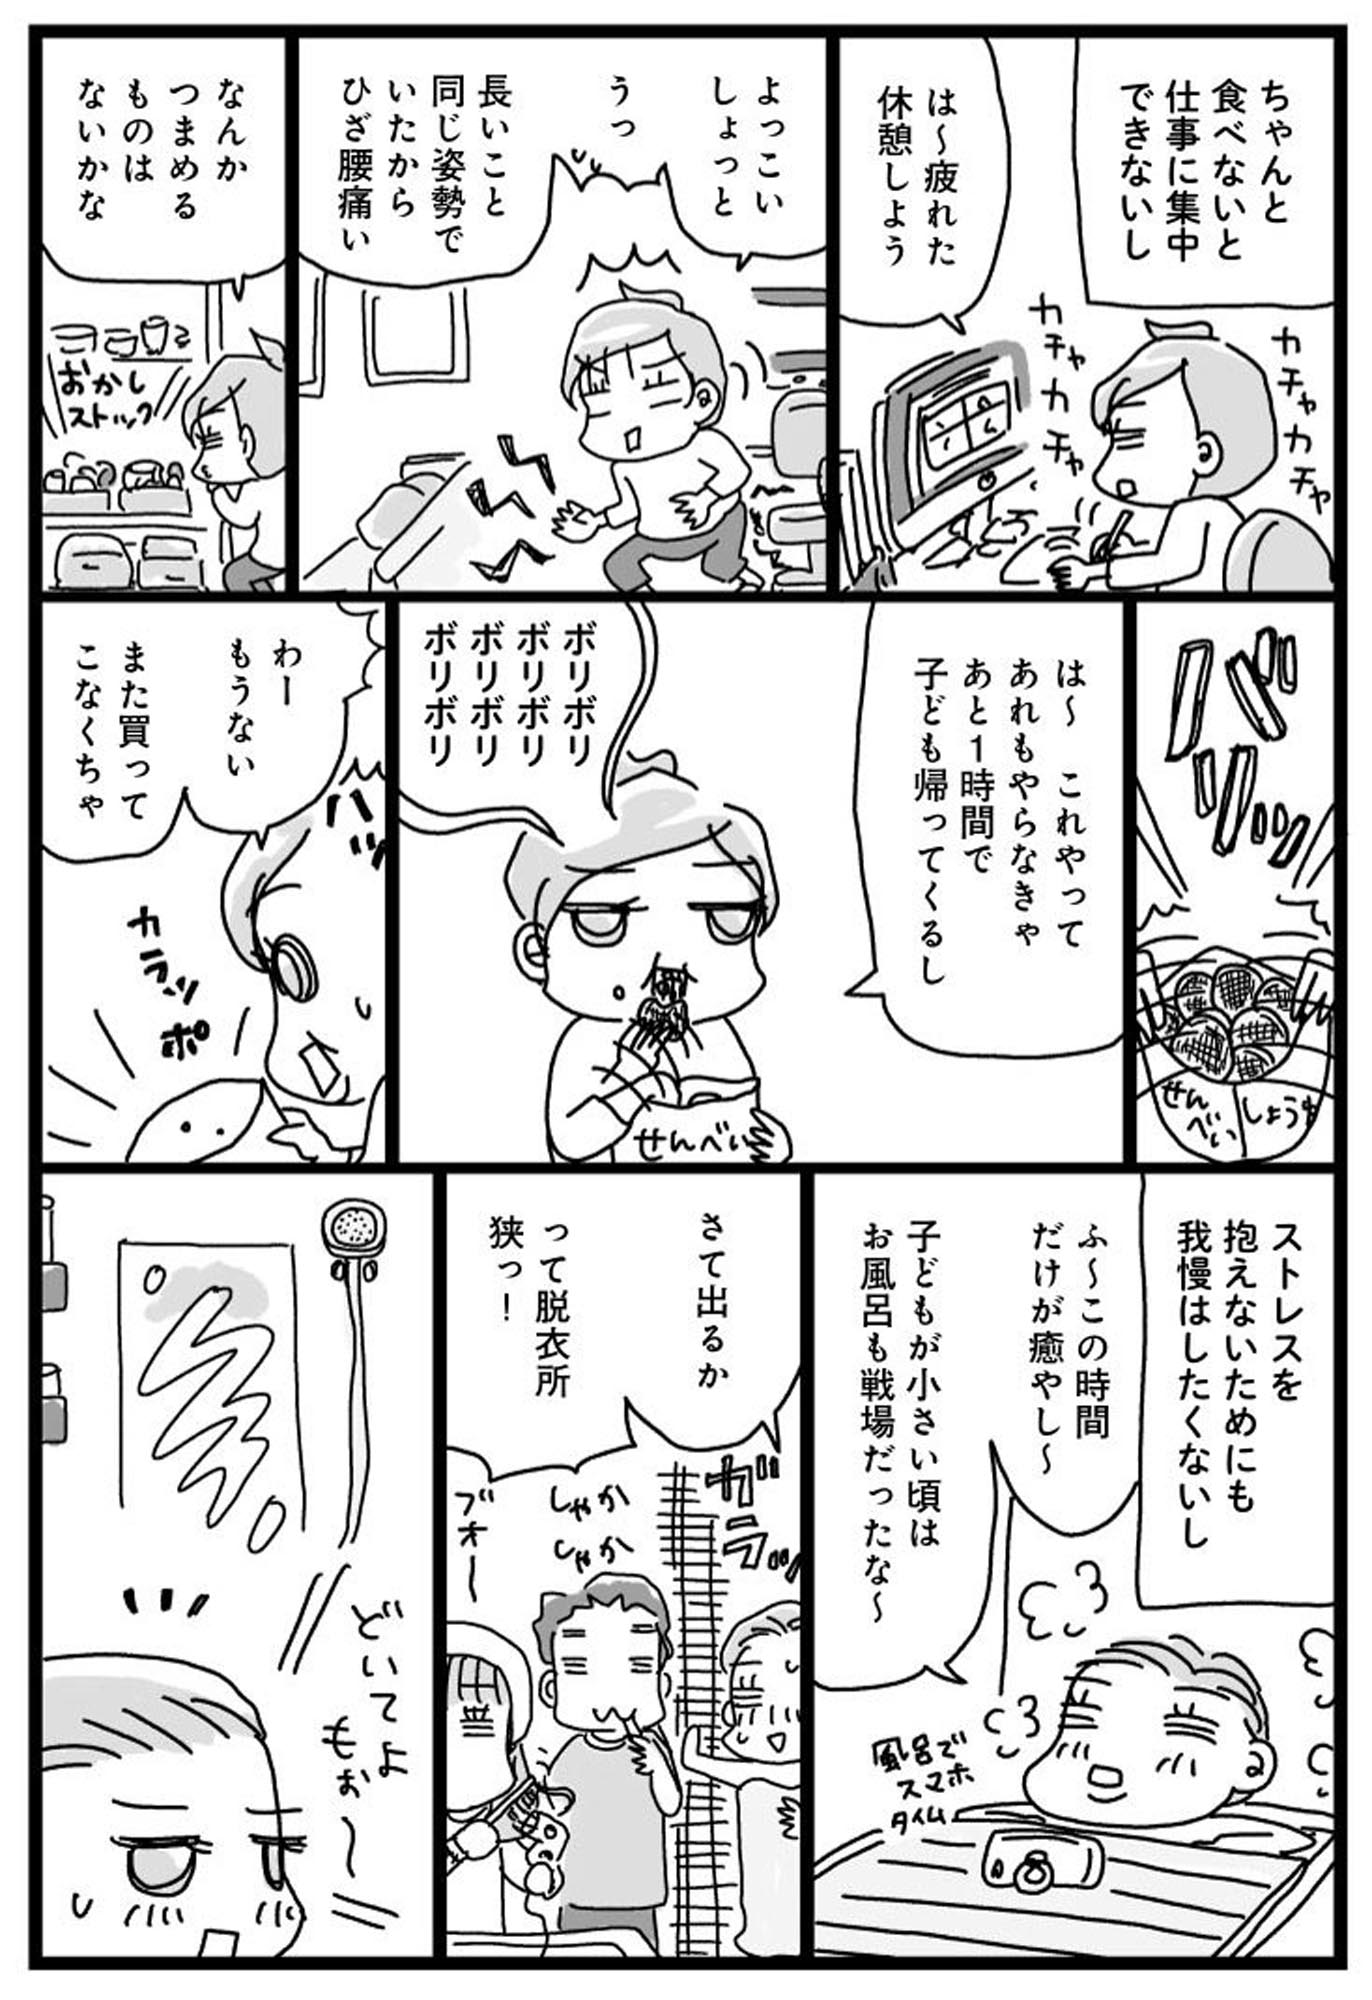 ちゃんと
食べないと
仕事に集中
できないし
は〜疲れた
休憩しよう
カチャカチャ
カチャカチャ
よっこい
しょっと
うっ
長いこと
同じ姿勢で
いたから
ひざ腰痛い
なんか
つまめる
ものは
ないかな
おかし
ストック
バリッ
せんべい
しょうゆ
は〜 これやって
あれもやらなきゃ
あと1時間で
子ども帰ってくるし
ボリボリ
ボリボリ
ボリボリ
ボリボリ
せんべい
わー
もうない
また買って
こなくちゃ
ハッ
カラッポ
ストレスを
抱えないためにも
我慢はしたくないし
ふ〜この時間
だけが癒やし〜
子どもが小さい頃は
お風呂も戦場だったな〜
風呂で
スマホ
タイム
さて出るか
って脱衣所
狭っ！
ガラッ
しゃか
しゃか
ブオー
どいてよ
もぉ〜